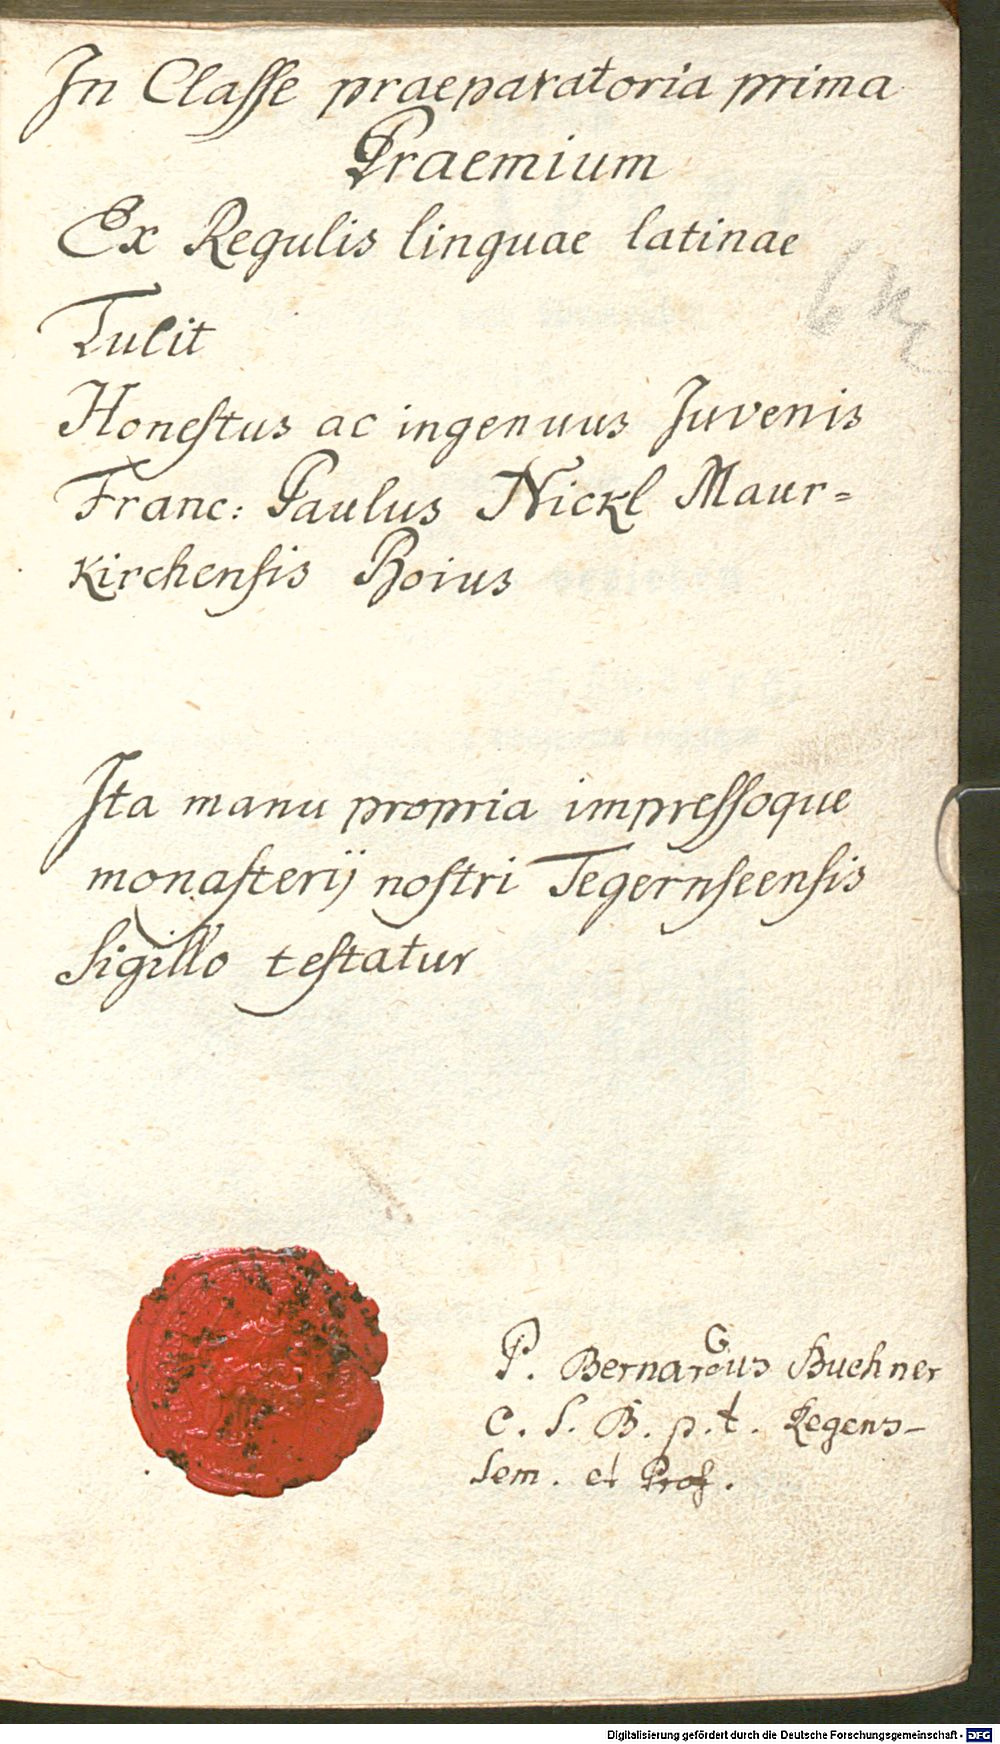 In Classe praeparatoria prima
Praemium
Ex Regulis linguae latinae
Tulit
Honestus ac ingenuus Juvenis
Franc: Paulus Nickl Maur=
kirchensis Boius
Ita manu propria impressoque
monasterij nostri Tegernseensis
sigillo testatur
P. Bernardus Buchner
C. S. B. p. t. Regens
Sem. et Prof.
Digitalisierung gefördert durch die Deutsche Forschungsgemeinschaft - DFG